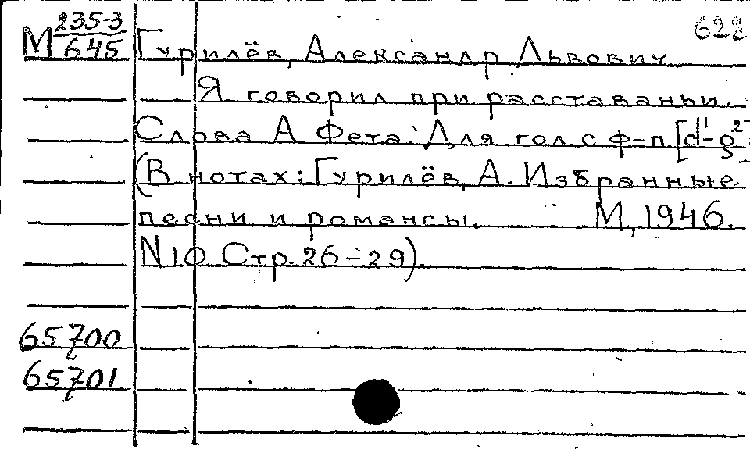 М 235-3/645 Гурилёв, Александр Львович 622
Я говорил при расставаньи.
Слова А Фета. Для гол. с ф-п [d¹-g²]
(В нотах: Гурилёв, А. Избранные
песни и романсы. М, 1946.
N 10 Стр. 26-29).
65700
65701